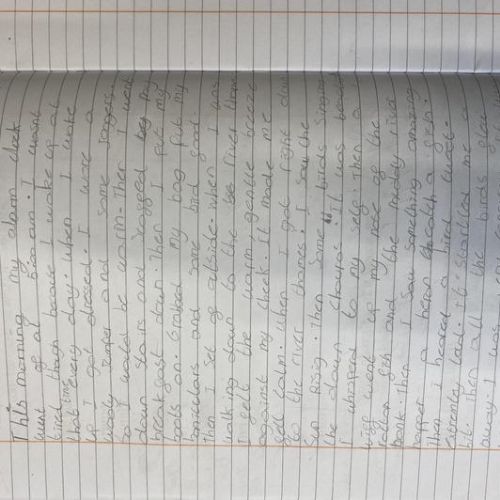 This morning my alarm clock
went of at 5:00am. I wasnt
tired though because I wake up at
that time every day. when I wake
up I got dressed. I wore a
wooly jumper and some joggers
so I would be warm. Then I went
down stairs and jogged my
breakfast down. Then I put my
boots on. Grabbed my bag put my
binoculars and some bird food.
then I set of outside. when I was
walking down to the river thames
I felt the warm gentle breeze
against my cheek. It made me
feel calm. when I got right down
to the river thames. I saw the
Sun rising. then some birds singing
the dawn chourus. it was
I whisped to my self. Then a
wiff went up my nose of the
rotton fish and the muddy river
bank. then I saw something amazing
happen a heron catch a fish.
then I heared a bird tweet.
extremely loud. it startled me
then all the birds flew
away. I